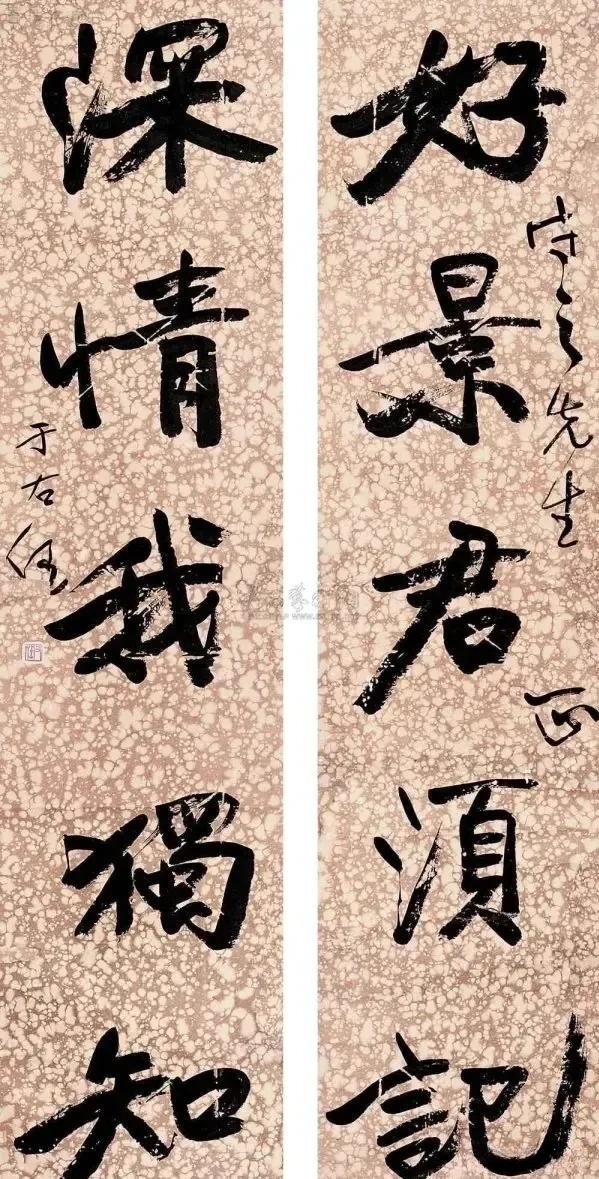 好景君須記
守之先生
正
深情我獨知
于右任